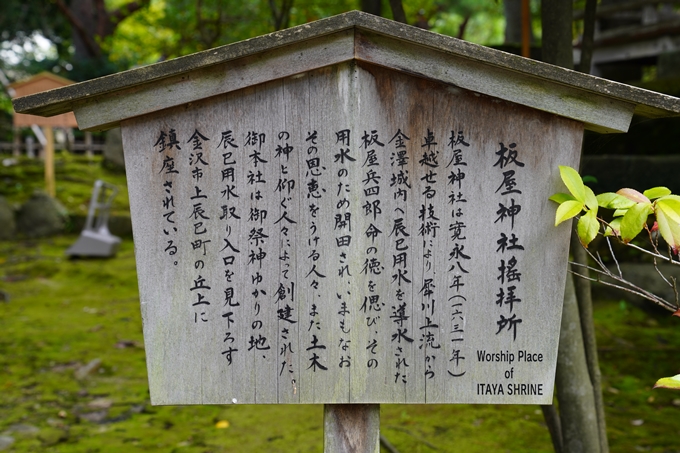 板屋神社遙拝所
Worship Place
of
ITAYA SHRINE
板屋神社は寛永八年(一六三一年)
卓越せる技術により、犀川上流から
金澤城内へ辰巳用水を導水された
板屋兵四郎命の徳を偲び、その
用水のため開田され、いまもなお
その恩恵をうける人々、また土木
の神と仰ぐ人々によって創建された。
御本社は御祭神ゆかりの地、
辰巳用水取り入口を見下ろす
金沢市上辰巳町の丘上に
鎮座されている。